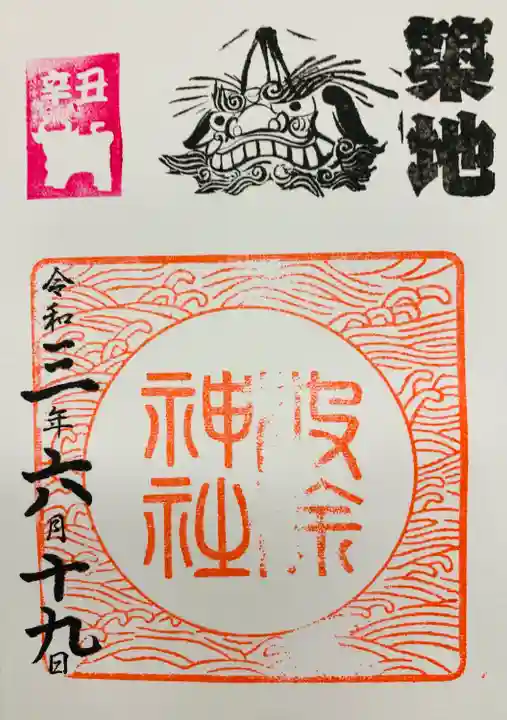 築地
辛丑
波除
神社
令和三年六月十九日